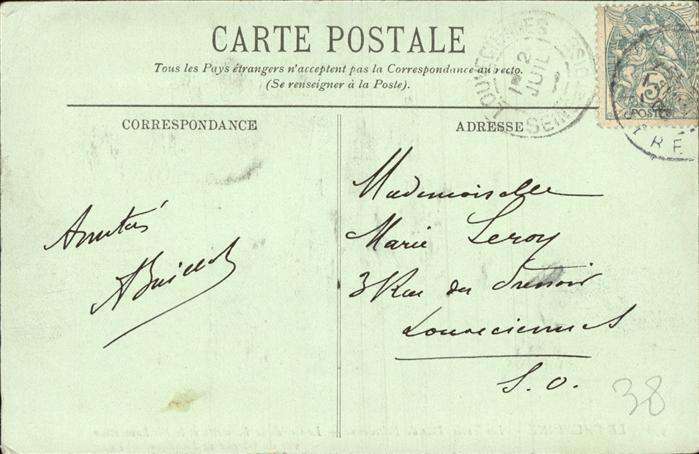 CARTE POSTALE
Tous les Pays étrangers n'acceptent pas la Correspondance au recto.
(Se renseigner à la Poste).
CORRESPONDANCE
ADRESSE
Amitiés
Mademoiselle
Marie Leroy
3 Rue du
Louveciennes
S. O.
38
5c
POSTES
2
JUIL